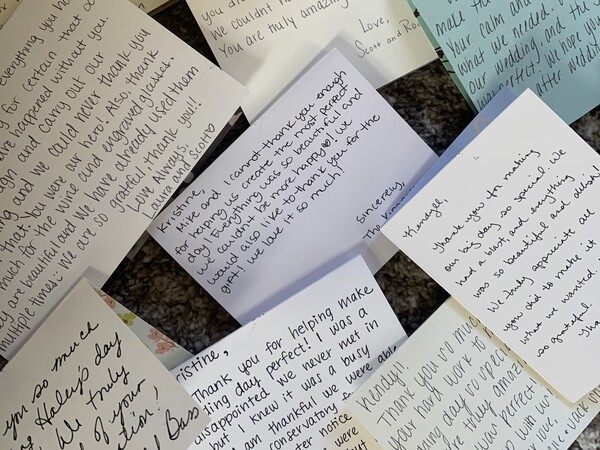 everything you h
g for certain that o
ave happened without you.
ign and carry out our
ng and we could never thank you
that. You were our hero! Also, thank
much for the wine and engraved glasses.
ey are beautiful and we have already used them
multiple times! We are so grateful, thank you!!
Love Always,
Laura and Scott♡
you di
We couldn't ho
You are truly amazing
Love,
Scott and Ro
make th
Your calm and
what we needed.
our wedding, and the
perfect! We hope you
after weddi
Kristine,
Mike and I cannot thank you enough
for helping us create the most perfect
day! Everything was so beautiful and
we couldn't be more happy! We
would also like to thank you for the
gift! We love it so much!
Sincerely,
The
thank you for making
our big day so special. We
had a blast, and everything
was so beautiful and
We truly appreciate all
you did to make it
what we wanted.
so grateful.
Tha
you so much
Haley's day
We truly
of your
ation!
d Bass
ristine,
Thank you for helping make
ding day perfect! I was a
disappointed we never met in
but I knew it was a busy
am thankful we were able
onservatory f
ter notice
were
Kendyl!
Thank you so much
your hard work to
ding day so speci
're truly amaz
was perfect
so with us